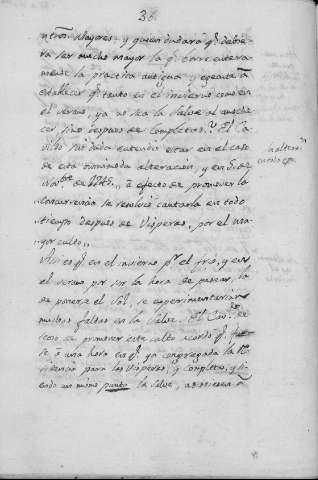 36
ntrõs. Mayores: y quien dudará qᵉ. debie-
ra ser mucho mayor la qᵉ. borre entera-
mente la practica antigua y egecute à
establecer qᵉ. tanto en el invierno como en
el verano, ya no sea la Salve al anoche-
cer sino despues de completas? El Ca-
vildo sin duda entendió estar en el caso
de esta minorada alteracion, y en 5. de
Novbre. de 1785., à efecto de promover la
concurrencia se resolvió cantarla en todo
tiempo despues de Visperas, por el ma-
yor culto.
Vio es qᵉ. en el invierno pʳ. el frio, y en
el verano pr. ser la hora de pasear, la
de ponerse el Sol, se experimentarian
muchas faltas en la Salve. El Cav.do de-
seoso de promover este culto acordó qᵉ. fue-
se à una hora en qᵉ. ya congregada la
para las Visperas, y Completas, y ha-
ciendo un mismo punto la Salve, asistiera à